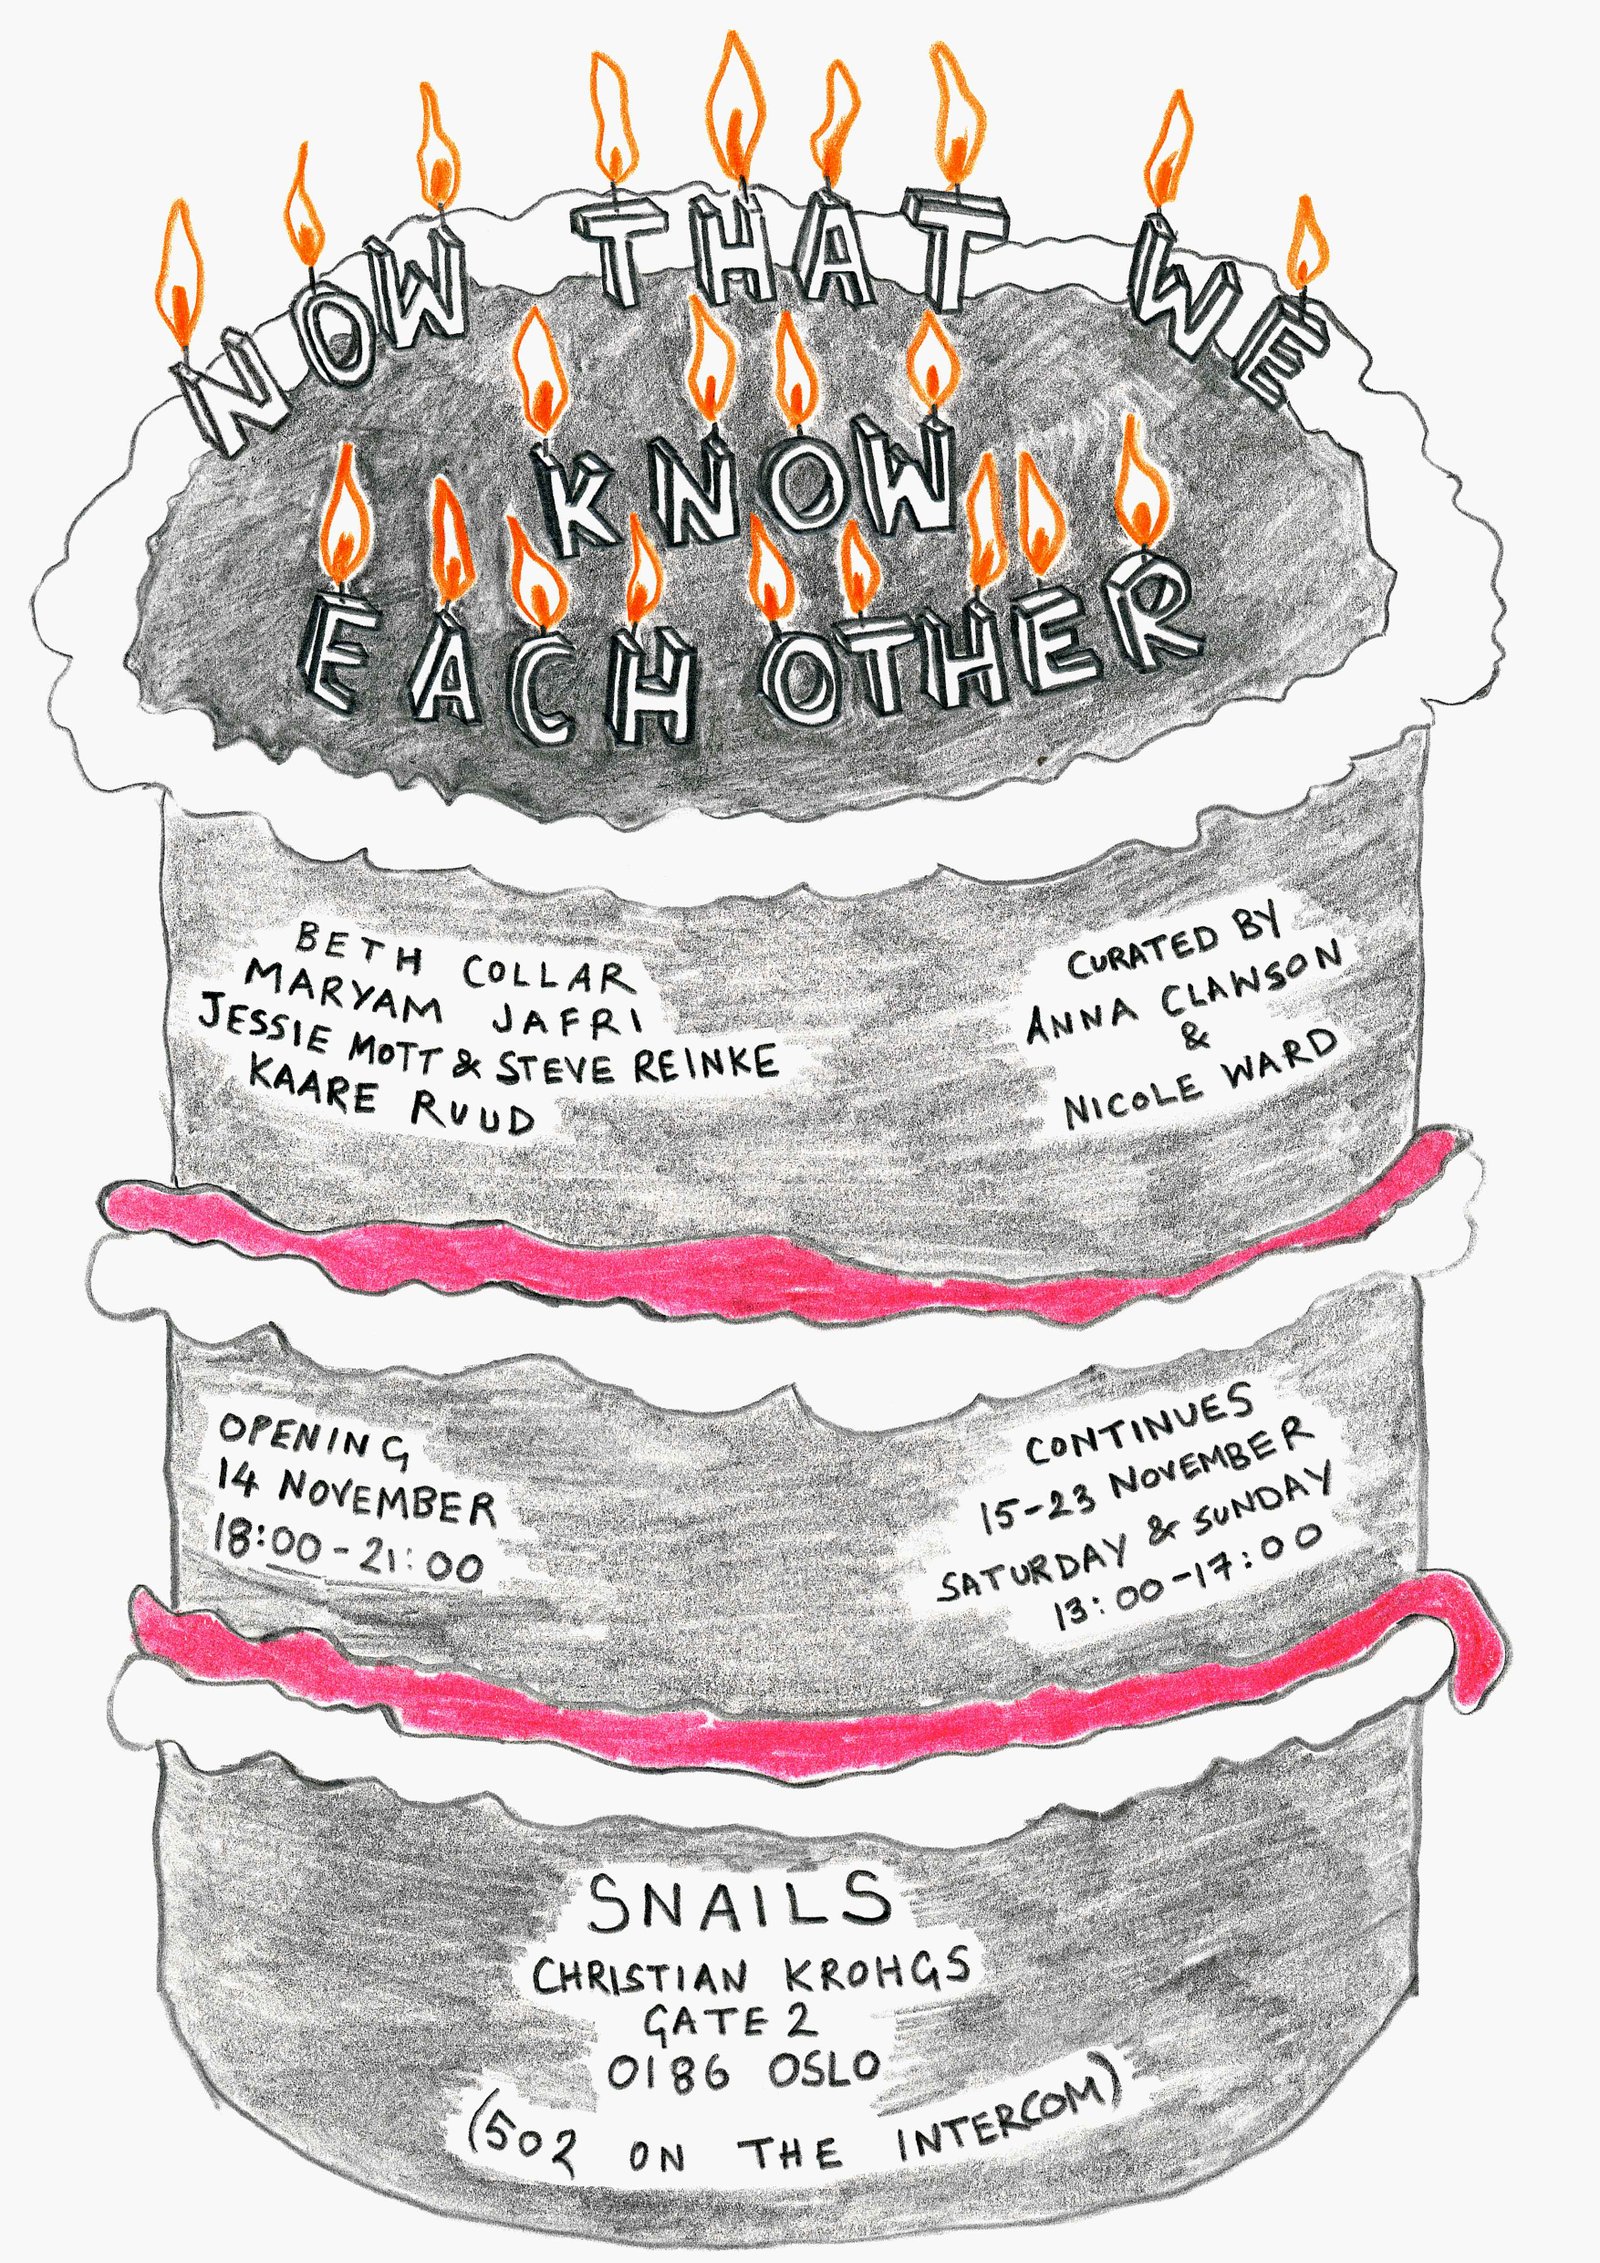 NOW THAT WE
KNOW
EACH OTHER
BETH COLLAR
MARYAM JAFRI
JESSIE MOTT & STEVE REINKE
KAARE RUUD
CURATED BY
ANNA CLAWSON
&
NICOLE WARD
OPENING
14 NOVEMBER
18:00-21:00
CONTINUES
15-23 NOVEMBER
SATURDAY & SUNDAY
13:00-17:00
SNAILS
CHRISTIAN KROHGS
GATE 2
0186 OSLO
(502 ON THE INTERCOM)